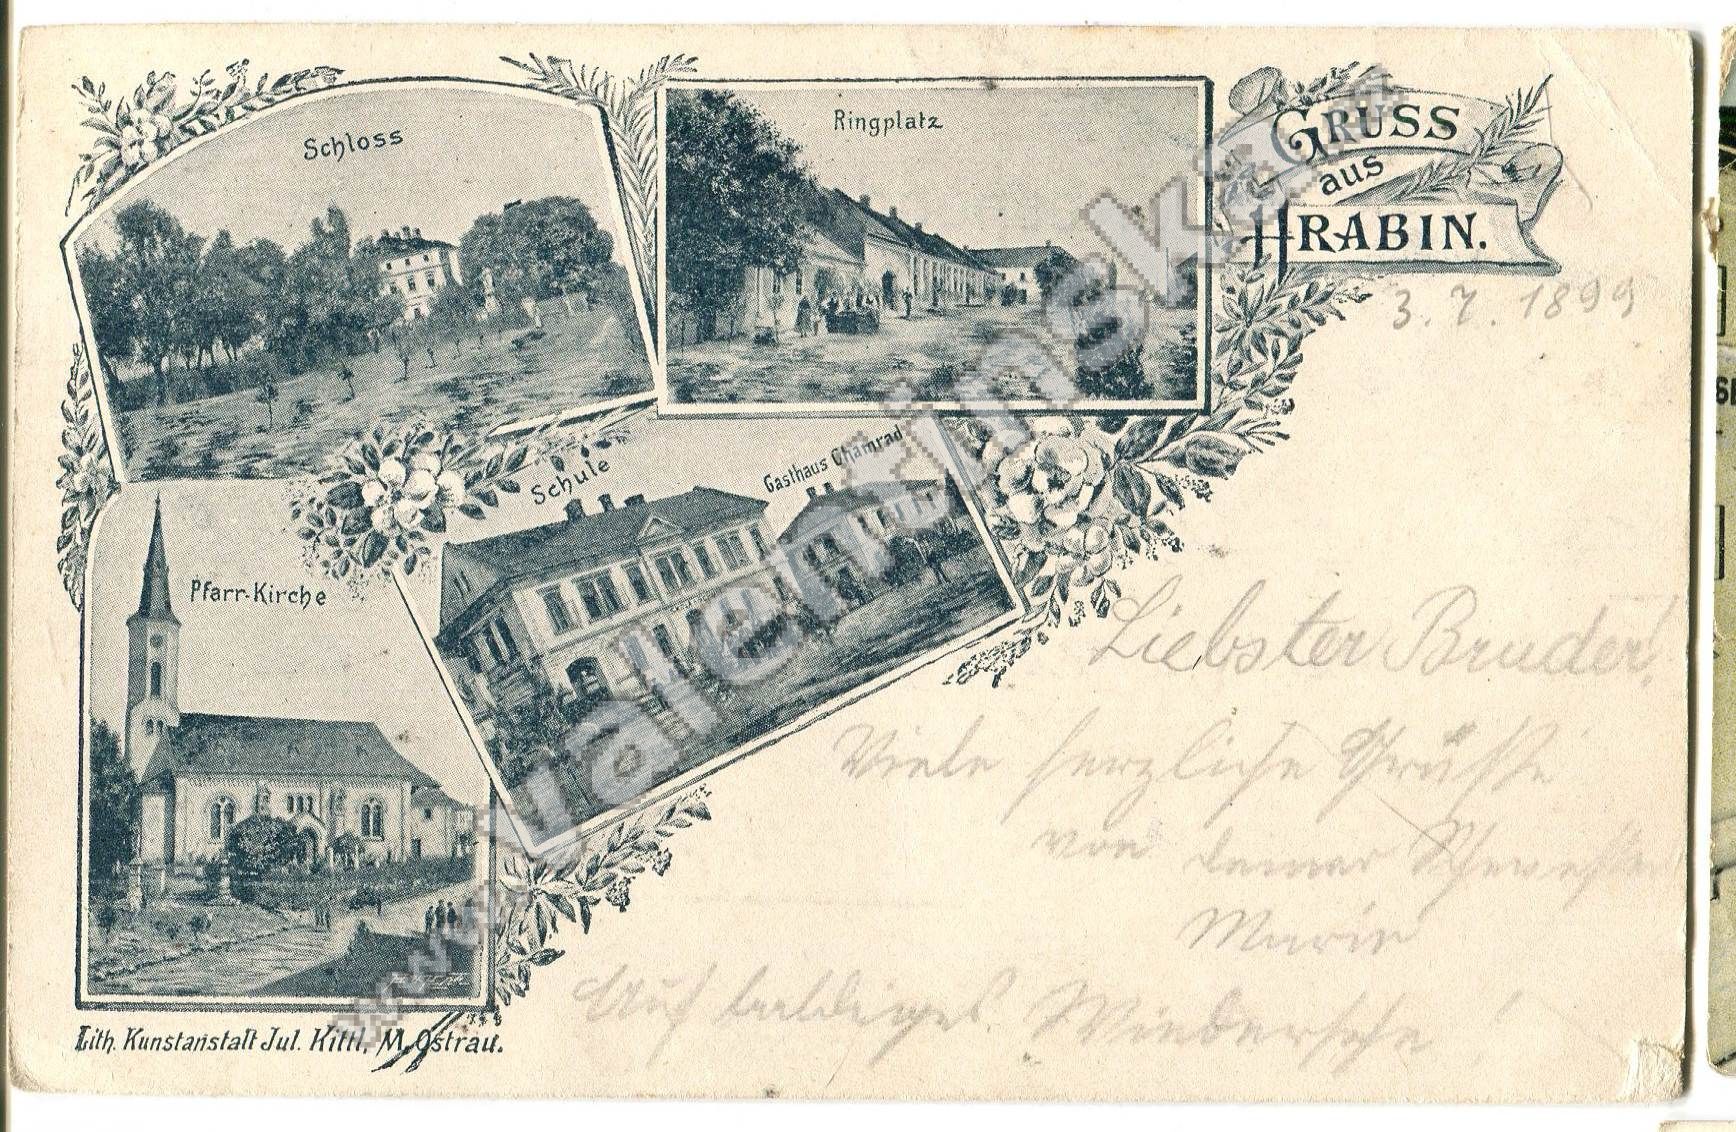 Schloss
Ringplatz
GRUSS
aus
HRABIN.
3. 7. 1899
Schule
Gasthaus Chamrad
Pfarr-Kirche
Liebster Bruder!
Viele herzliche Grüße
von deiner Schwester
Marie
Auf baldiges Wiedersehen!
Lith. Kunstanstalt Jul. Kittl, M. Ostrau.